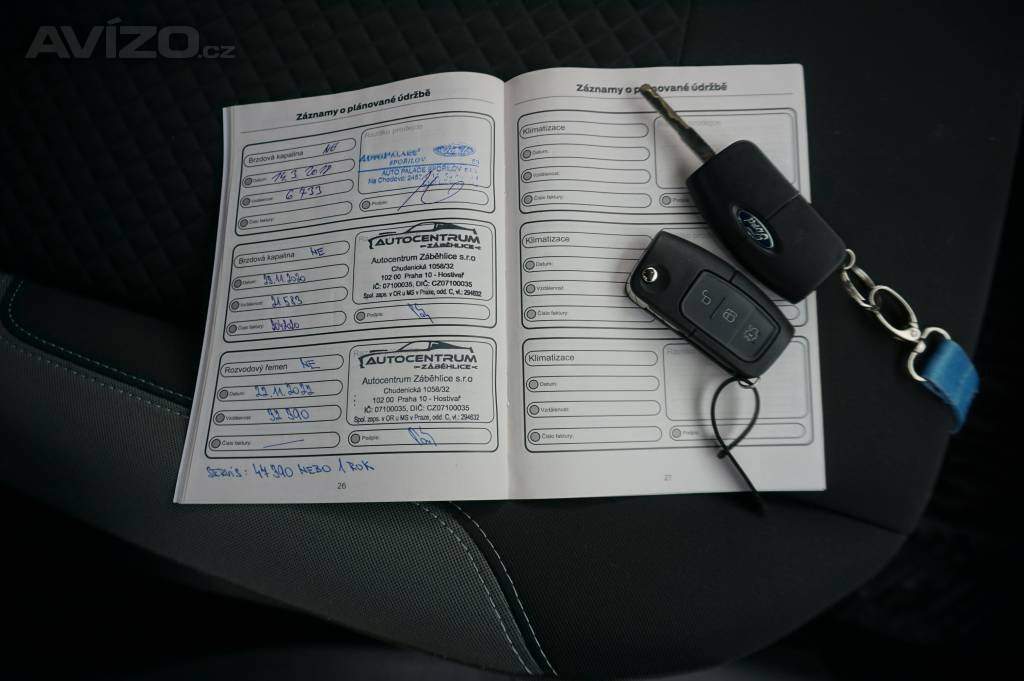 AVÍZO.cz
Záznamy o plánované údržbě
Brzdová kapalina NE
Datum: 14.3.2018
Vzdálenost: 6 733
Číslo faktury:
Razítko prodejce
AUTOPALACE Ford
SPOŘILOV
AUTO PALACE SPOŘILOV
Na Chodovci
Podpis:
Brzdová kapalina NE
Datum: 23.11.2020
Vzdálenost: 21 583
Číslo faktury:
AUTOCENTRUM
ZÁBĚHLICE
Autocentrum Záběhlice s.r.o
Chudenická 1058/32
102 00 Praha 10 - Hostivař
IČ: 07100035, DIČ: CZ07100035
Spol. zaps. v OR u MS v Praze, odd. C, vl.: 294632
Podpis:
Rozvodový řemen NE
Datum: 22.11.2022
Vzdálenost: 32 390
Číslo faktury: —
AUTOCENTRUM
ZÁBĚHLICE
Autocentrum Záběhlice s.r.o
Chudenická 1058/32
102 00 Praha 10 - Hostivař
IČ: 07100035, DIČ: CZ07100035
Spol. zaps. v OR u MS v Praze, odd. C, vl.: 294632
Podpis:
SERVIS: 47 390 NEBO 1 ROK
26
Záznamy o plánované údržbě
Klimatizace
Datum:
Vzdálenost:
Číslo faktury:
Podpis:
Klimatizace
Datum:
Vzdálenost:
Číslo faktury:
Klimatizace
Datum:
Vzdálenost:
Číslo faktury:
Podpis:
27
Ford